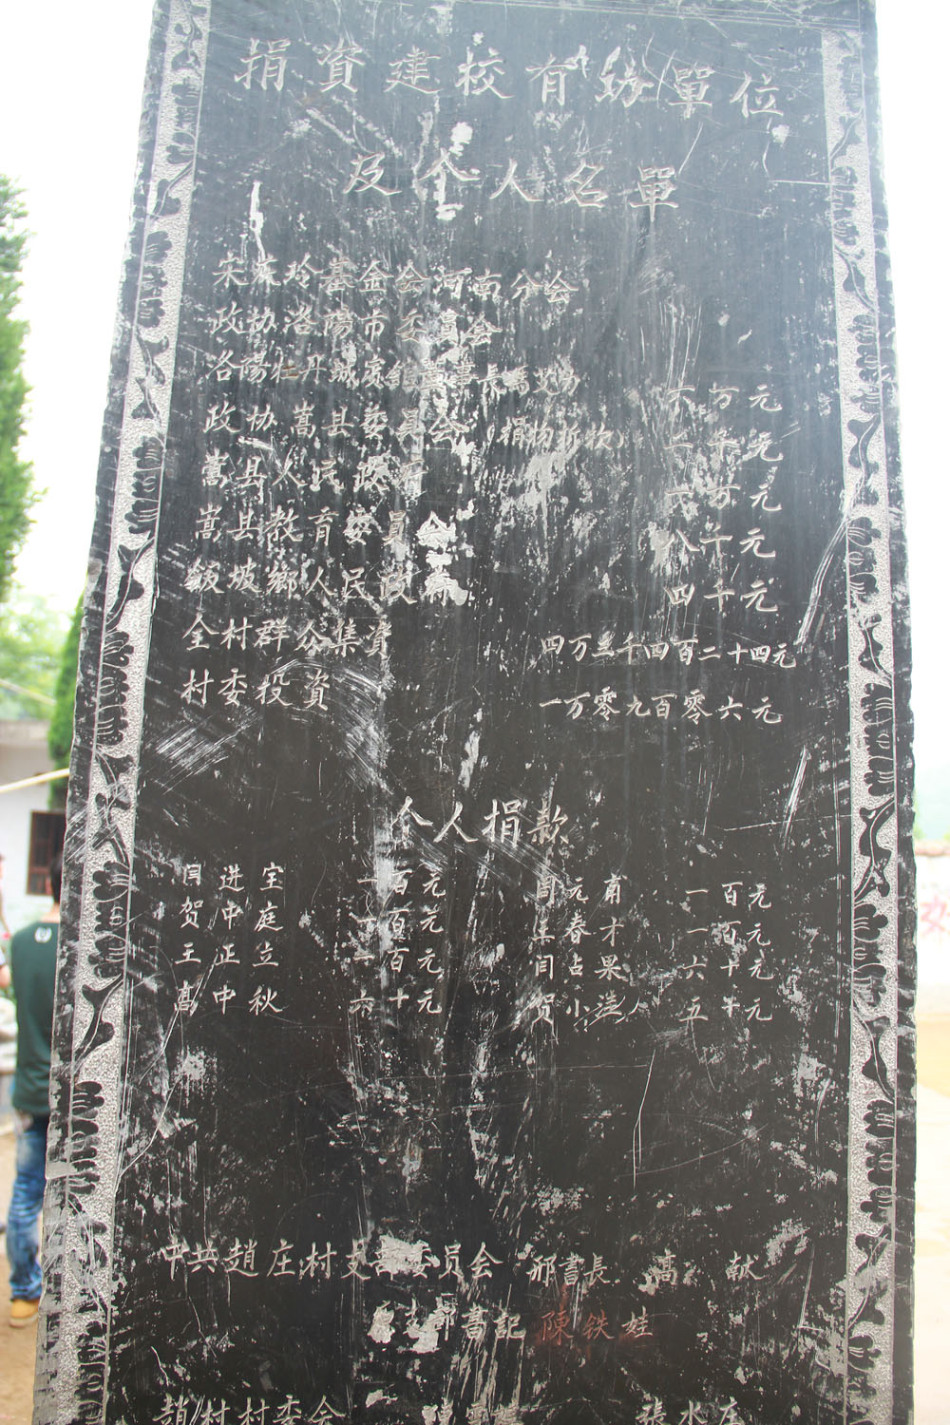 捐資建校有功單位
及个人名單
宋慶玲基金会河南分会
政协洛陽市委員会
洛陽牡丹城 六万元
政协嵩县委員会(捐物折款) 二千元
嵩县人民政府 一万元
嵩县教育委員会 八千元
飯坡鄉人民政府 四千元
全村群众集資 四万三千四百二十四元
村委投資 一万零九百零六元
个人捐款
闫进宝 一百元 闫元有 一百元
贺中庭 百元 春才 一百元
王正立 一百元 闫占果 六十元
高中秋 六十元 贺小 五十元
中共趙庄村支部委员会 部書長 高献
支部書記 陳铁桂
趙村村委会 張水庄